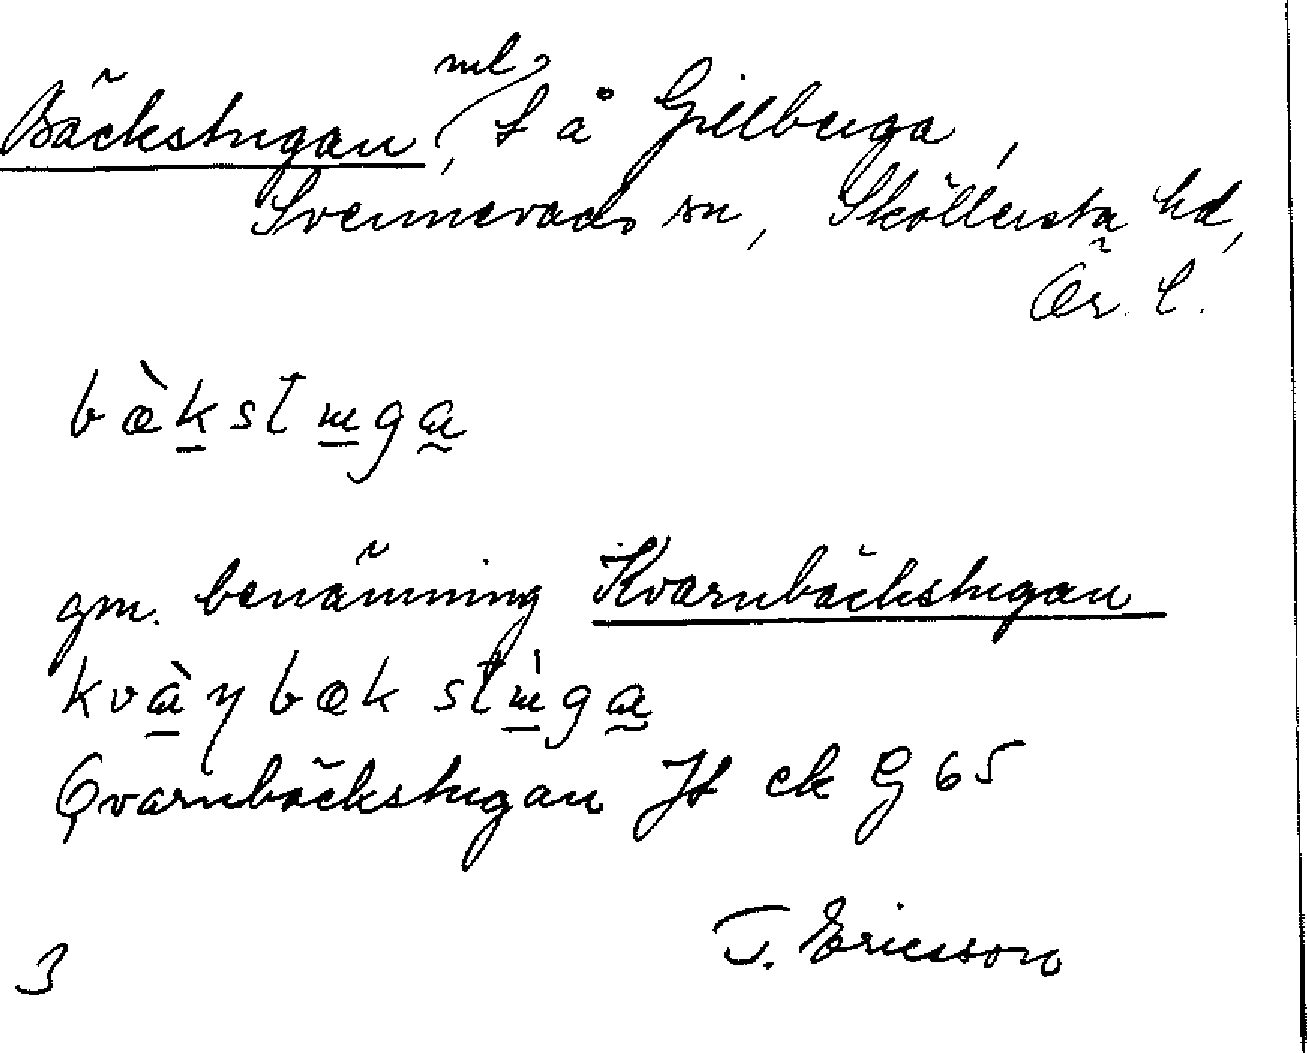 Bäckstugan, ml,
t å Gillberga,
Svennevads sn, Sköllersta hd,
Ör. l.
bæ̀kstuga
gm. benämning Kvarnbäckstugan
kvàɳbæk stùga
Qvarnbäckstugan Jt ek G 65
T. Ericsson
3